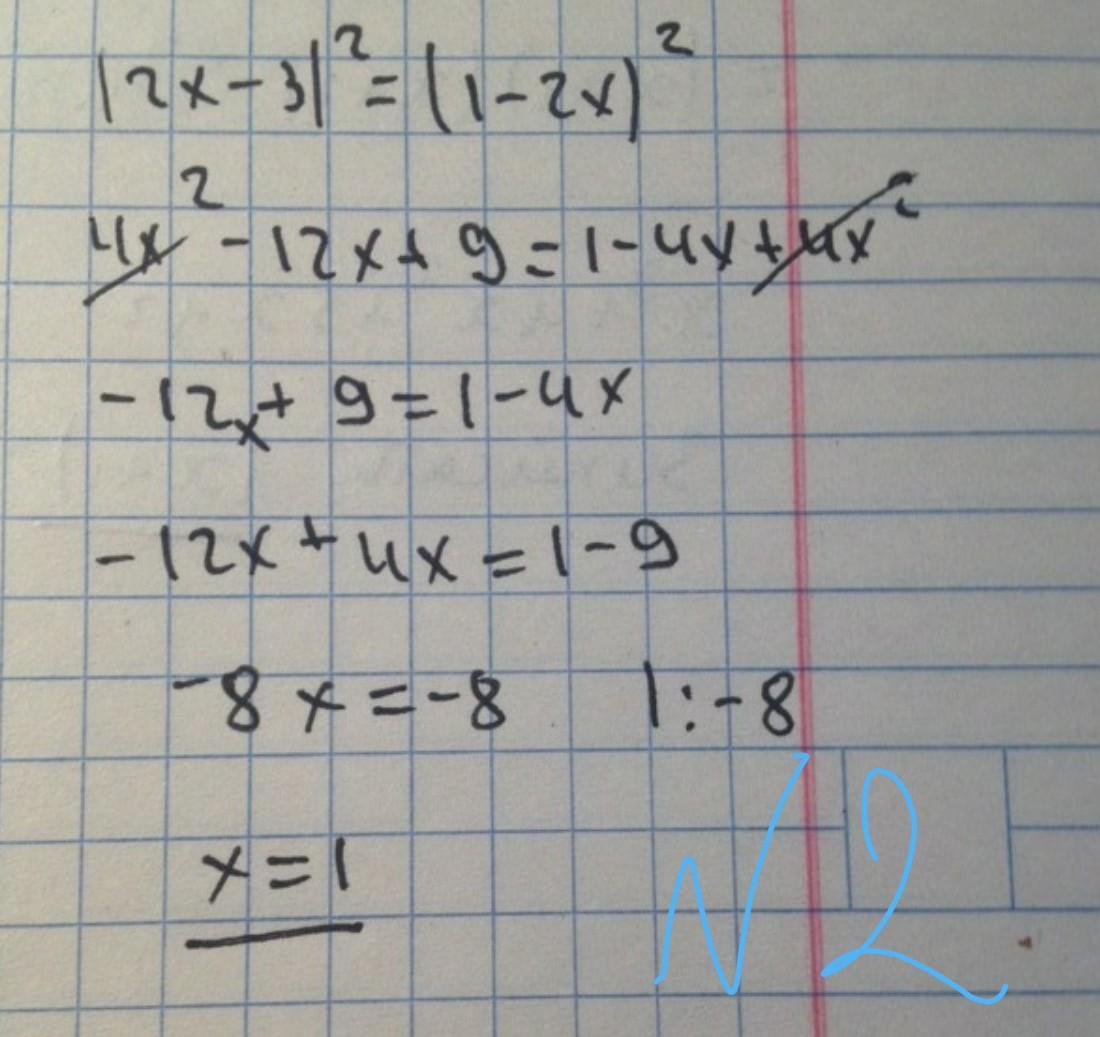 |2x-3|² = (1-2x)²
4x² - 12x + 9 = 1 - 4x + 4x²
-12x + 9 = 1 - 4x
-12x + 4x = 1 - 9
-8x = -8 |: -8
x = 1
N2